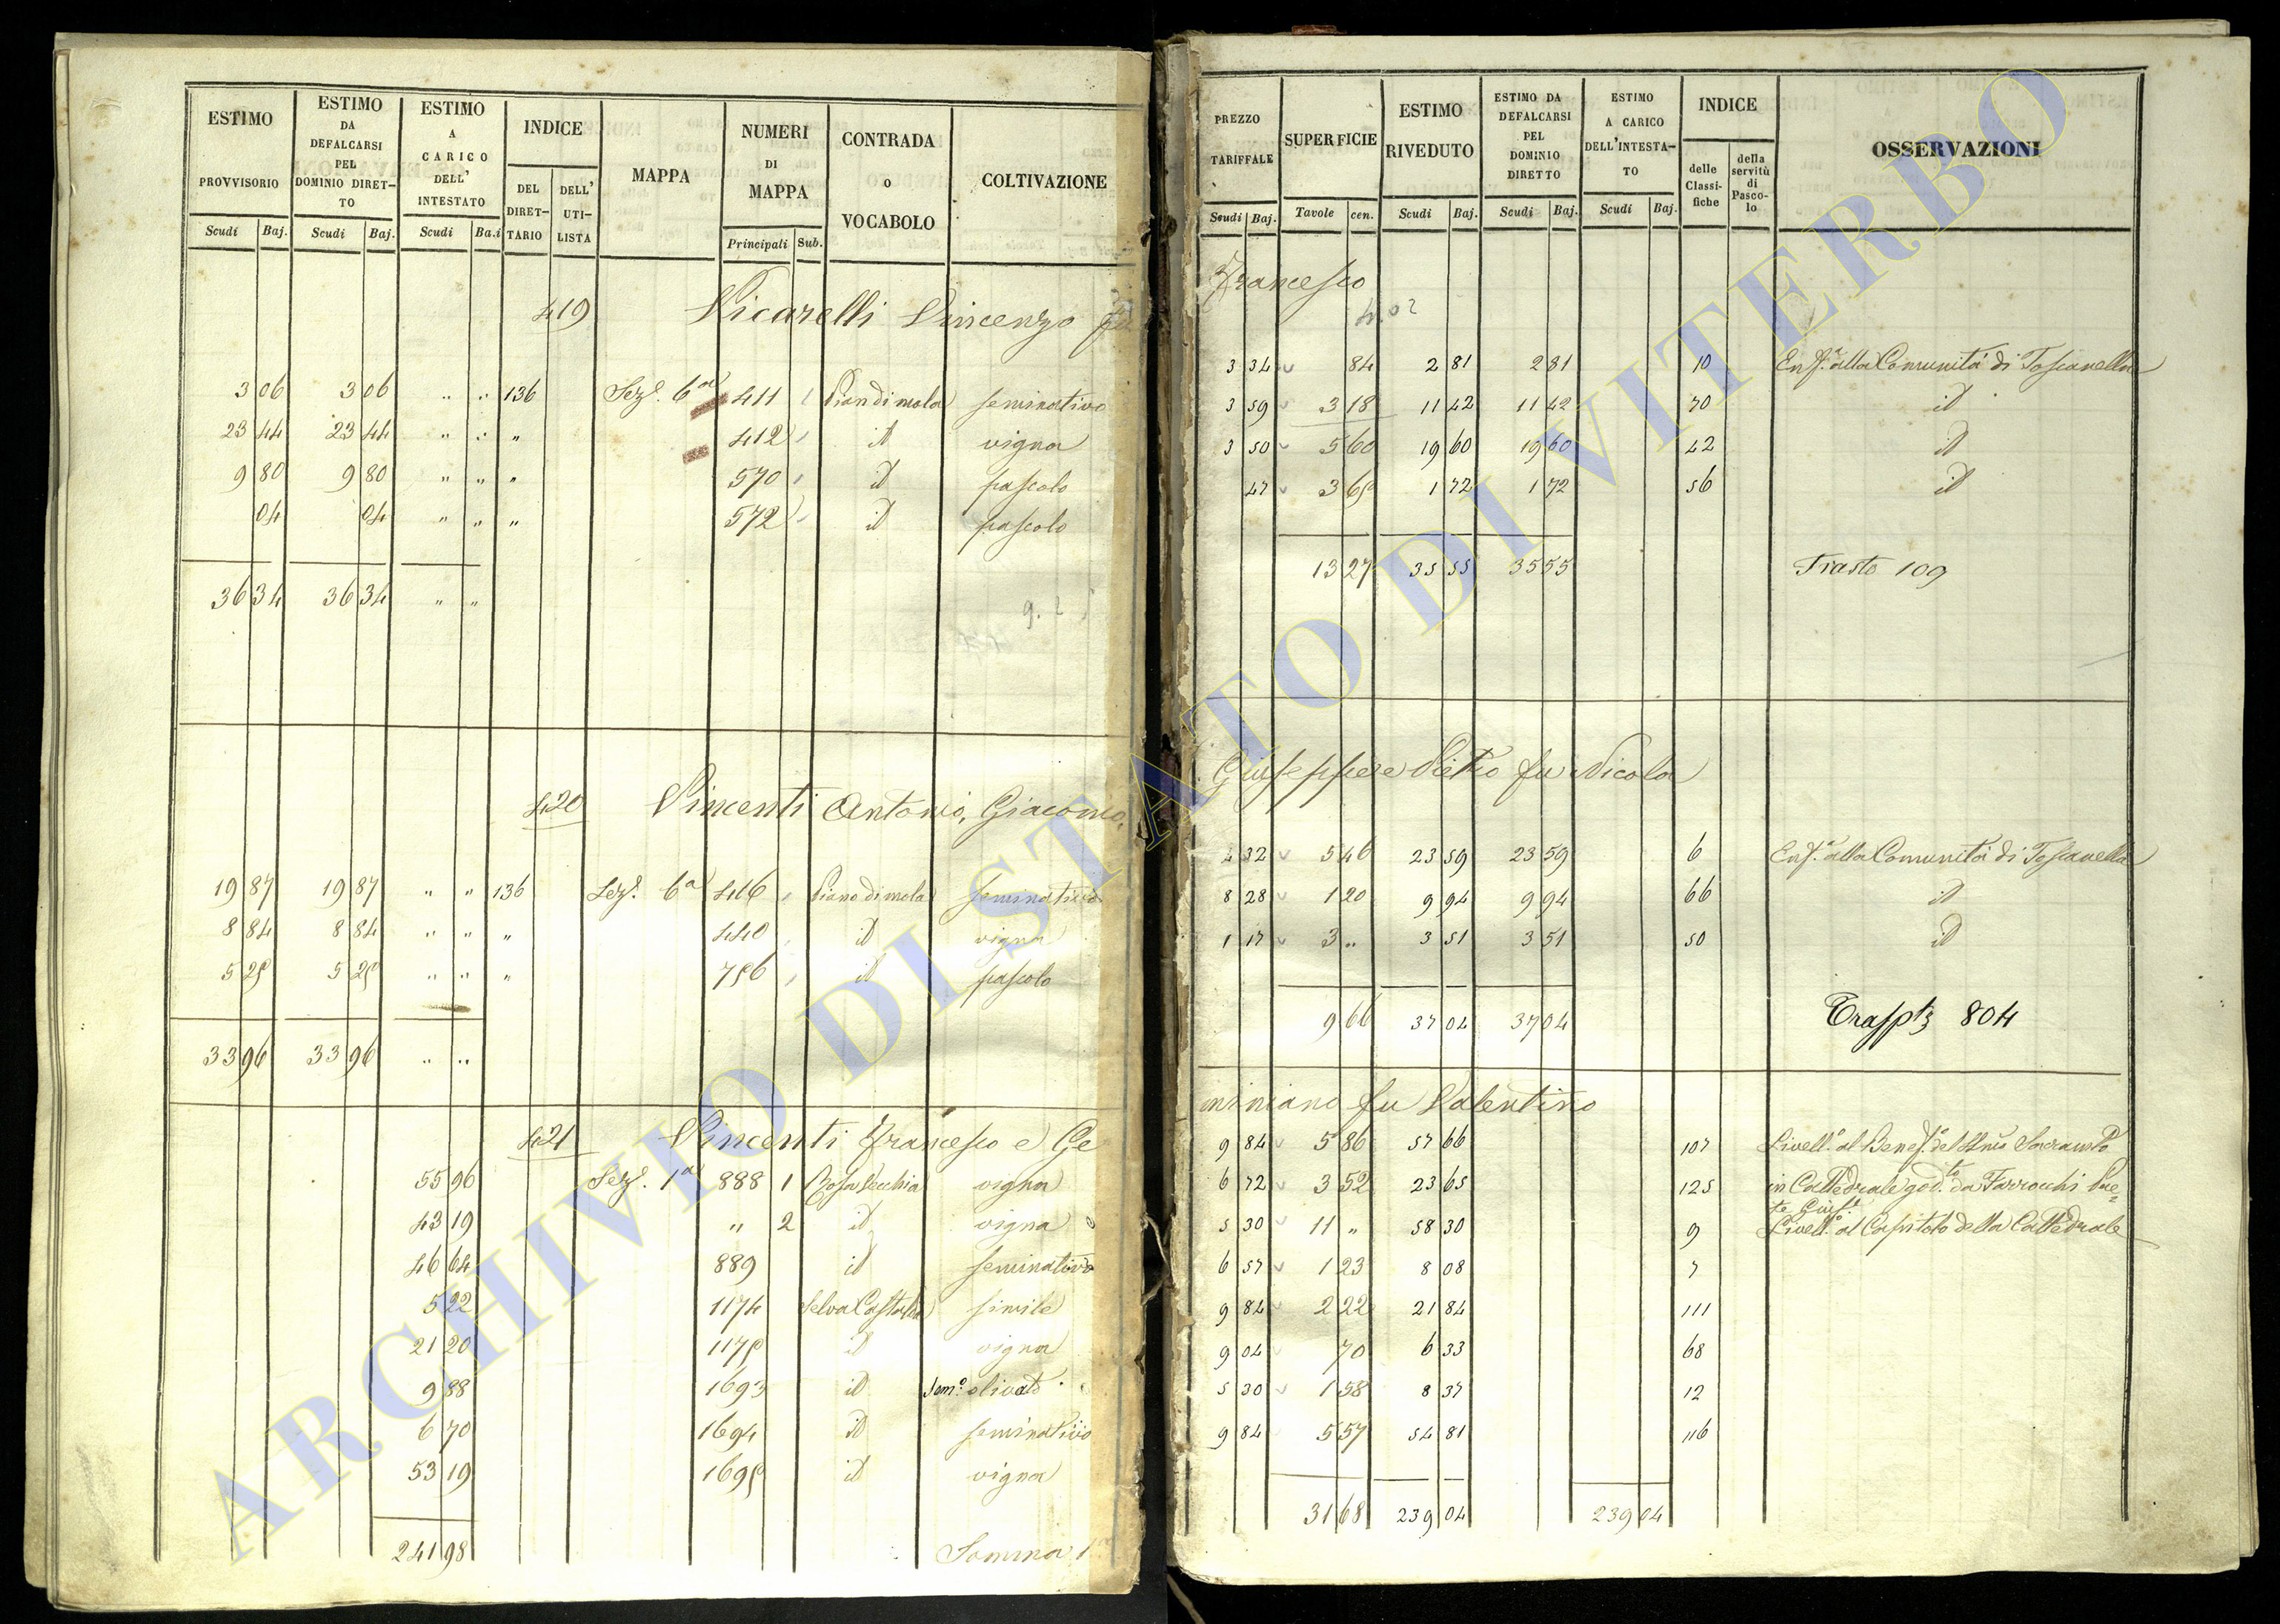 ESTIMO PROVVISORIO | ESTIMO DA DEFALCARSI PEL DOMINIO DIRET-TO | ESTIMO A CARICO DELL' INTESTATO | INDICE | MAPPA | NUMERI DI MAPPA | CONTRADA o VOCABOLO | COLTIVAZIONE
DEL DIRET-TARIO | DELL' UTI-LISTA
Scudi | Baj. | Scudi | Baj. | Scudi | Ba.i | Principali | Sub.
419 Vicarelli Vincenzo fu
3 06 | 3 06 | " " | 136 | Sez.e 6a | 411 | Piandimola | seminativo
23 44 | 23 44 | " " | " | 412 | id | vigna
9 80 | 9 80 | " " | " | 570 | id | pascolo
04 | 04 | " " | " | 572 | id | pascolo
36 34 | 36 34 | " "
420 Vincenti Antonio, Giacomo,
19 87 | 19 87 | " " | 136 | Sez.e 6a | 416 | Piano di mola | seminativo
8 84 | 8 84 | " " | " | 440 | id | vigna
5 25 | 5 25 | " " | " | 756 | id | pascolo
33 96 | 33 96 | " "
421 Vincenti Francesco e Ge
55 96 | Sez.e 1a | 888 | 1 | Rosavecchia | vigna
43 19 | " | 2 | id | vigna
46 64 | 889 | id | seminativo
5 22 | 1174 | Selva | simile
21 20 | 1175 | id | vigna
9 88 | 1693 | id | Sem.o olivato
6 70 | 1694 | id | seminativo
53 19 | 1695 | id | vigna
241 98 | Somma
PREZZO TARIFFALE | SUPERFICIE | ESTIMO RIVEDUTO | ESTIMO DA DEFALCARSI PEL DOMINIO DIRETTO | ESTIMO A CARICO DELL'INTESTA-TO | INDICE | OSSERVAZIONI
delle Classi-fiche | della servitù di Pasco-lo
Scudi | Baj. | Tavole | cen. | Scudi | Baj. | Scudi | Baj. | Scudi | Baj.
Francesco
3 34 | 84 | 2 81 | 2 81 | 10 | Enf.a alla Comunità di Toscanella
3 59 | 3 18 | 11 42 | 11 42 | 70 | id
3 50 | 5 60 | 19 60 | 19 60 | 42 | id
47 | 3 65 | 1 72 | 1 72 | 56 | id
13 27 | 35 55 | 35 55 | Trasto 109
Giuseppe e Pietro fu Nicola
4 32 | 5 46 | 23 59 | 23 59 | 6 | Enf.a alla Comunità di Toscanella
8 28 | 1 20 | 9 94 | 9 94 | 66 | id
1 17 | 3 " | 3 51 | 3 51 | 50 | id
9 66 | 37 04 | 37 04 | 804
miniano fu Valentino
9 84 | 5 86 | 57 66 | 107 | Livell.o al Benef.o del
6 72 | 3 52 | 23 65 | 125 | in Cattedrale god.to da Farrocchi
5 30 | 11 " | 58 30 | 9 | Livell.o al Capitolo della Cattedrale
6 57 | 1 23 | 8 08 | 7
9 84 | 2 22 | 21 84 | 111
9 04 | 70 | 6 33 | 68
5 30 | 1 58 | 8 37 | 12
9 84 | 5 57 | 54 81 | 116
31 68 | 239 04 | 239 04
ARCHIVIO DI STATO DI VITERBO